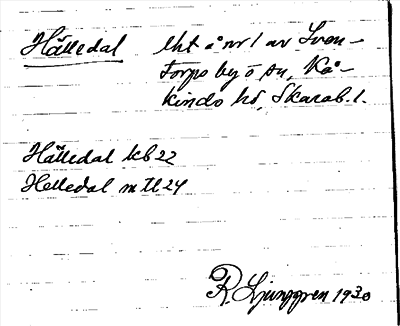 Hälledal lht å nr 1 av Sven-
torps by ö sn, Kå-
kinds hd, Skarab. l.
Hälledal kb 22
Helledal mtl 24
R. Ljunggren 1930